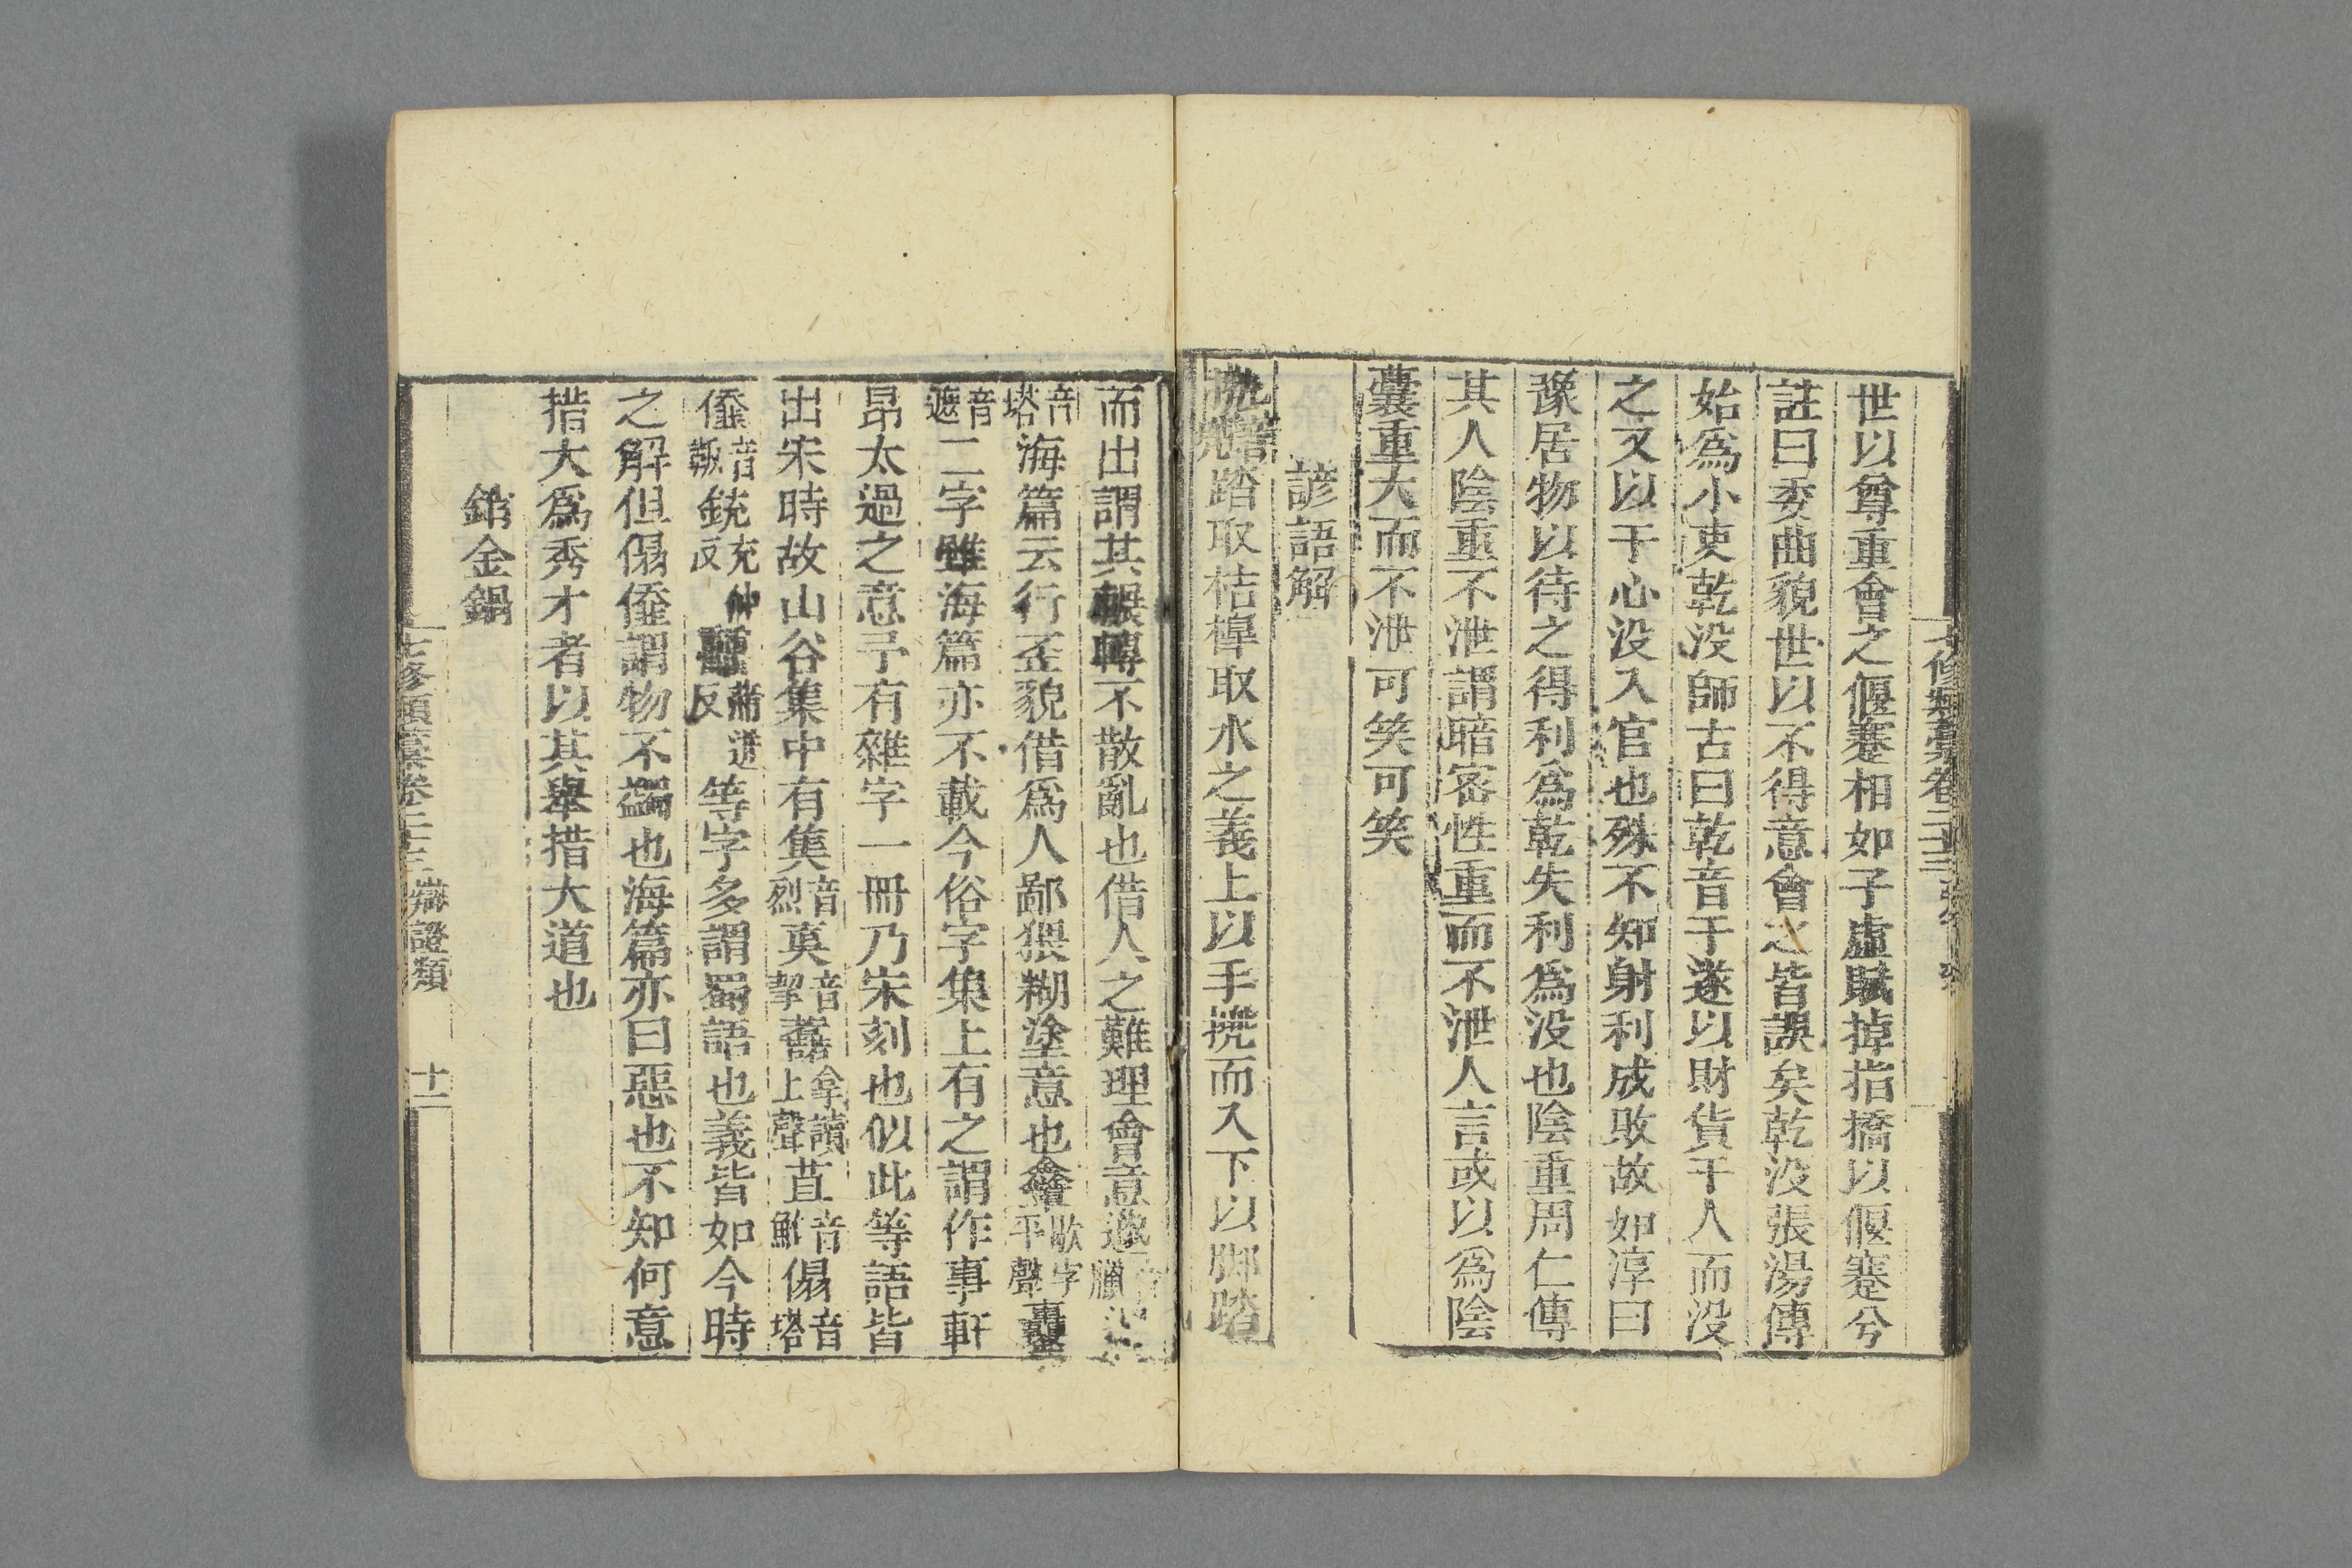 七修類藁卷二十三
世以尊重會之偃蹇相如子虛賦掉指橋以偃蹇兮
註曰委曲貌世以不得意會之皆誤矣乾没張湯傳
始爲小吏乾没師古曰乾音干遂以財貨干人而没
之又以干心没入官也殊不知射利成敗故如淳曰
豫居物以待之得利爲乾失利爲没也陰重周仁傳
其人陰重不泄謂暗密性重而不泄人言或以爲陰
囊重大而不泄可笑可笑
諺語解
踏取桔槹取水之義上以手攙而入下以脚踏
而出謂其輾轉不散亂也借人之難理會意
音塔海篇云行歪貌借爲人鄙猥糊塗意也歇字平聲
音遢二字雖海篇亦不載今俗字集上有之謂作事軒
昂太過之意予有雜字一冊乃宋刻也似此等語皆
出宋時故山谷集中有音烈音挈拿讀上聲苴音鮓傝音塔
音靸銃充仲反蒲迸反等字多謂蜀語也義皆如今時
之解但傝謂物不蠲也海篇亦曰惡也不知何意
措大爲秀才者以其舉措大道也
銷金鍋
七修類藁卷二十三 辯證類 十二